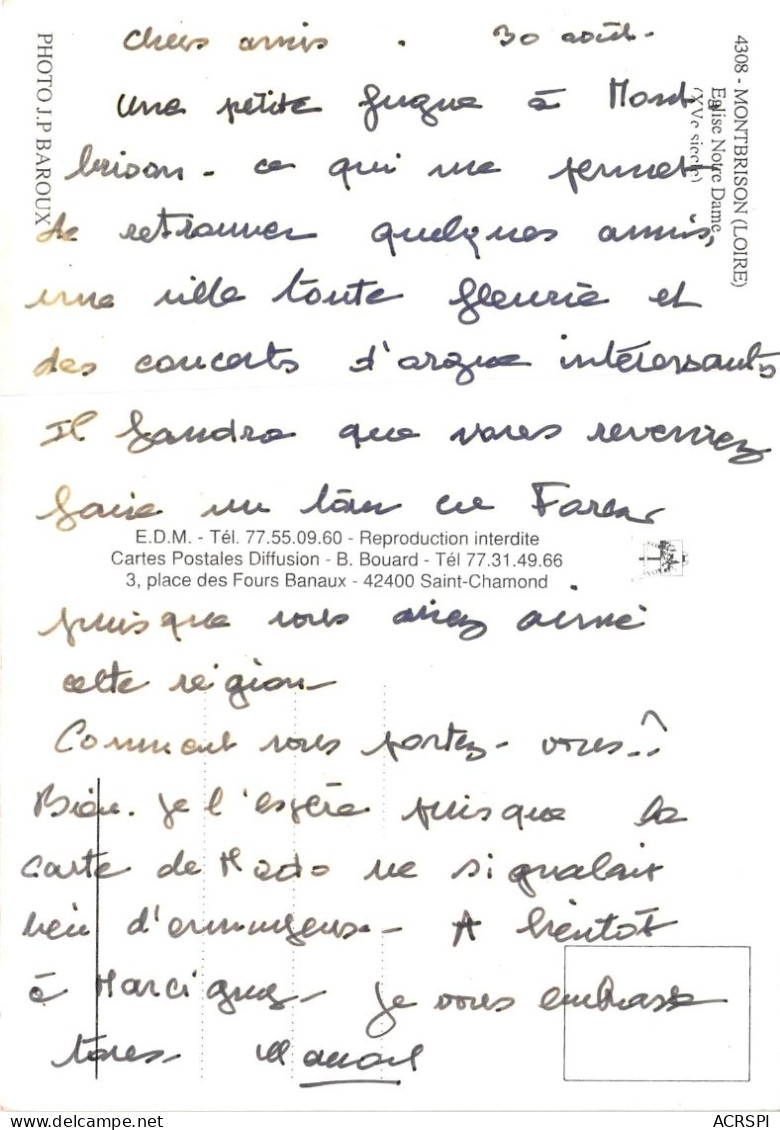 chers amis . 30 août.
Une petite fugue à Mont
brison - ce qui me permet
de retrouver quelques amis,
une ville toute fleurie et
des concerts d'orgue intéressants
Il faudra que vous reveniez
faire un tour en Forez
E.D.M. - Tél. 77.55.09.60 - Reproduction interdite
Cartes Postales Diffusion - B. Bouard - Tél 77.31.49.66
3, place des Fours Banaux - 42400 Saint-Chamond
puisque vous aviez aimé
cette région
Comment vous portez-vous..?
Bien. je l'espère puisque la
carte de Mado ne signalait
rien d'ennuyeux - A bientôt
à Marcigny - je vous embrasse
tous.
4308 - MONTBRISON (LOIRE)
Eglise Notre Dame
(XVe siècle)
PHOTO J.P BAROUX
ACRSPI